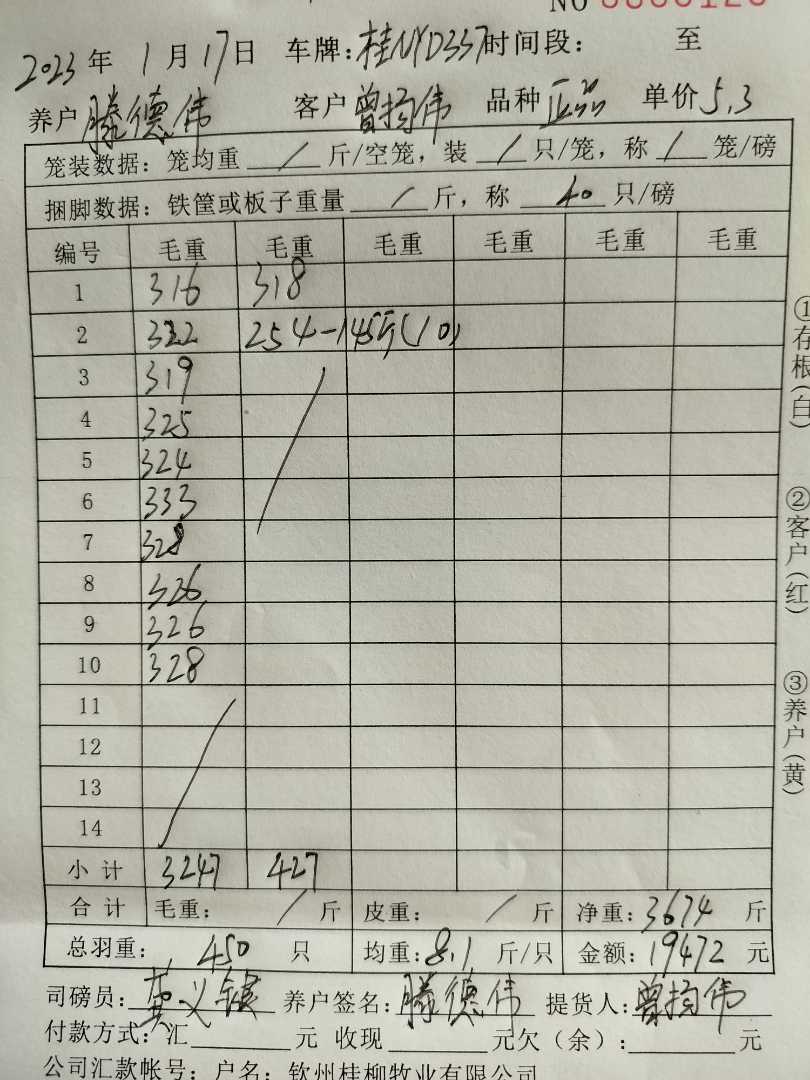 NO 0000120
2023 年 1 月 17 日 车牌: 桂NYD337 时间段: 至
养户 滕德伟 客户 曾扬伟 品种 正品 单价 5.3
笼装数据: 笼均重 / 斤/空笼, 装 / 只/笼, 称 / 笼/磅
捆脚数据: 铁筐或板子重量 / 斤, 称 40 只/磅
编号 毛重 毛重 毛重 毛重 毛重 毛重
1 316 318
2 322 254-145斤(10)
3 319
4 325
5 324
6 333
7 328
8 326
9 326
10 328
11
12
13
14
小计 3247 427
合计 毛重: / 斤 皮重: / 斤 净重: 3674 斤
总羽重: 450 只 均重: 8.1 斤/只 金额: 19472 元
司磅员: 义 养户签名: 滕德伟 提货人: 曾扬伟
付款方式: 汇 元 收现 元欠(余): 元
公司汇款帐号: 户名: 钦州桂柳牧业有限公司
①存根(白)
②客户(红)
③养户(黄)